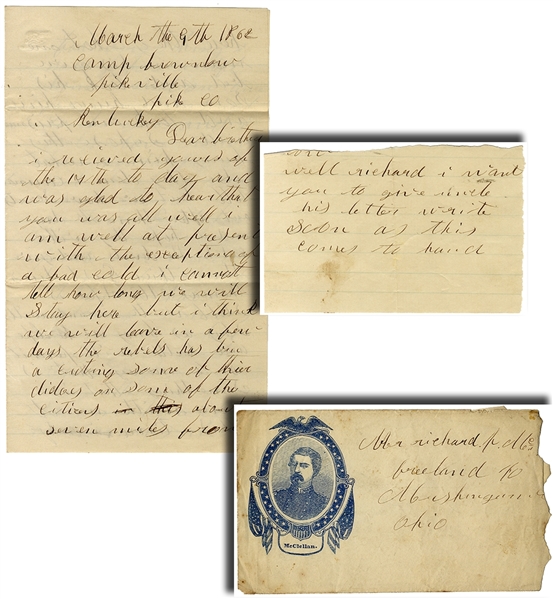 March the 9th 1862
Camp brownlow
pikeville
pike co
Kentuckey
Dear brother
i recieved yours of
the 14th to day and
was glad to hear that
you was all well i
am well at present
with the exception of
a bad cold i cannot
tell how long we will
stay here but i think
we will leave in a few
days the rebels has bin
a cuting some of thier
didoes on som of the
citizens in this about
seven miles from
well richard i want
you to give uncle
his letter write
soon as this
comes to hand
Mr richard p. Mc
freeland Po
Muskingum
Ohio
McClellan.